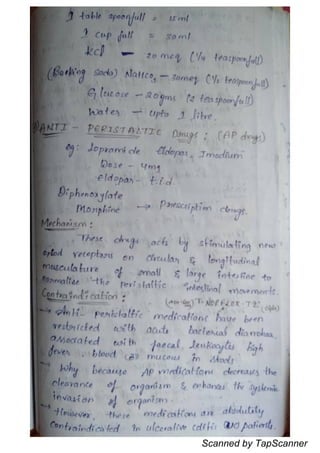 1 table spoonfull = 15ml
1 cup full = 30ml
KCl — 20 meq (1/4 teaspoonfull)
(Baking soda) NaHCO3 — 30meq (1/2 teaspoonfull)
Glucose - 20gms (2 teaspoonfull)
Water - upto 1 litre.
ANTI - PERISTALTIC Drugs : (AP drugs)
eg: Lopramide Eldopar, Imodium
Dose - 4mg
eldopar - t.i.d.
Diphenoxylate
Morphine → Prescription drugs.
Mechanism :
These drugs acts by stimulating
opiod receptors on circular & longitudinal
musculature of small & large intestine to
normalise the peristaltic intestinal movements.
Contraindication : T-NORFLOX-TZ
→ Anti peristaltic medications have been
restricted with acute bacterial diarrhoea
associated with faecal leukocytes high
fever, blood mucous in stools
→ Why because AP medication decreases the
clearance of organism & enhances the systemic
invasion of organism.
→ However, these medications are absolutely
contraindicated in ulcerative patients.
Scanned by TapScanner